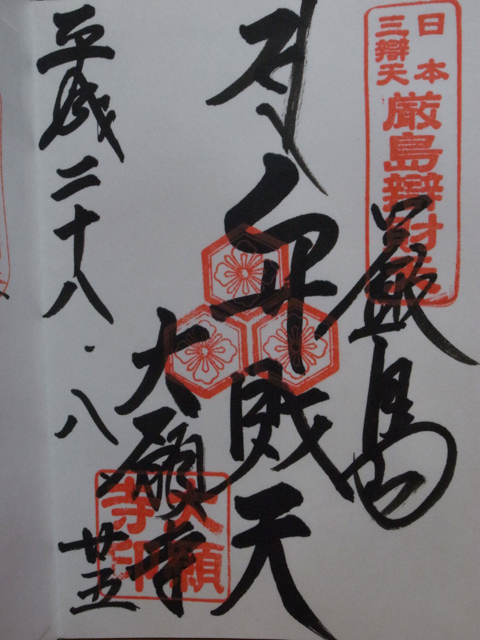 日本
三辯天
厳島辯財天
厳島
弁財天
大願寺
大願
寺印
平成二十八・八
廿五